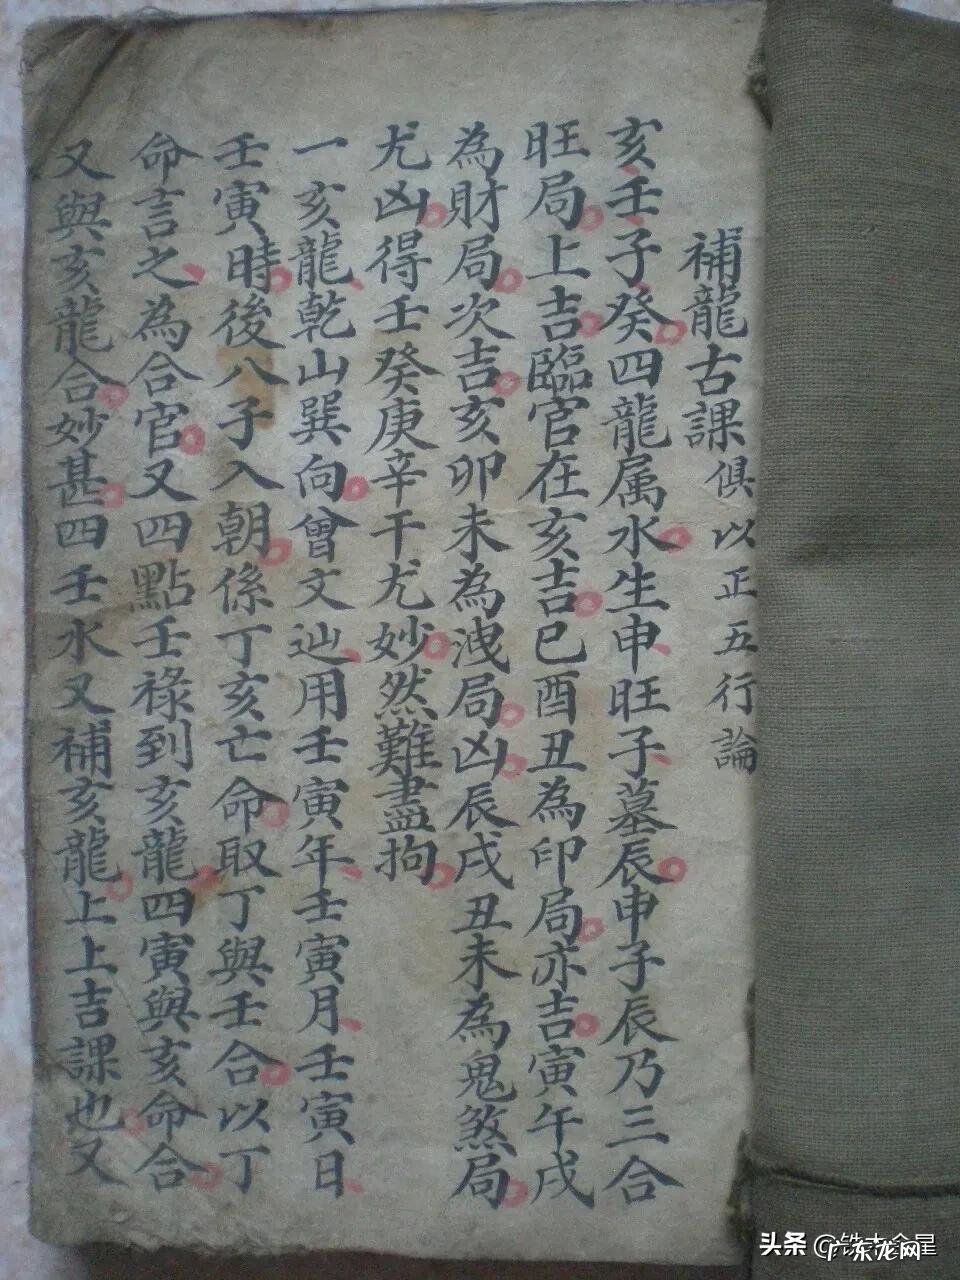 補龍古課俱以正五行論
亥壬子癸四龍属水生申旺子墓辰申子辰乃三合
旺局上吉臨官在亥吉巳酉丑為印局亦吉寅午戌
為財局次吉亥卯未為洩局凶辰戌丑未為鬼煞局
尤凶得壬癸庚辛干尤妙然難盡拘
一亥龍乾山巽向曾文辿用壬寅年壬寅月壬寅日
壬寅時後八子入朝係丁亥亡命取丁與壬合以丁
命言之為合官又四點壬祿到亥龍四寅與亥命合
又與亥龍合妙甚四壬水又補亥龍上上吉課也又
头条
广东龙网